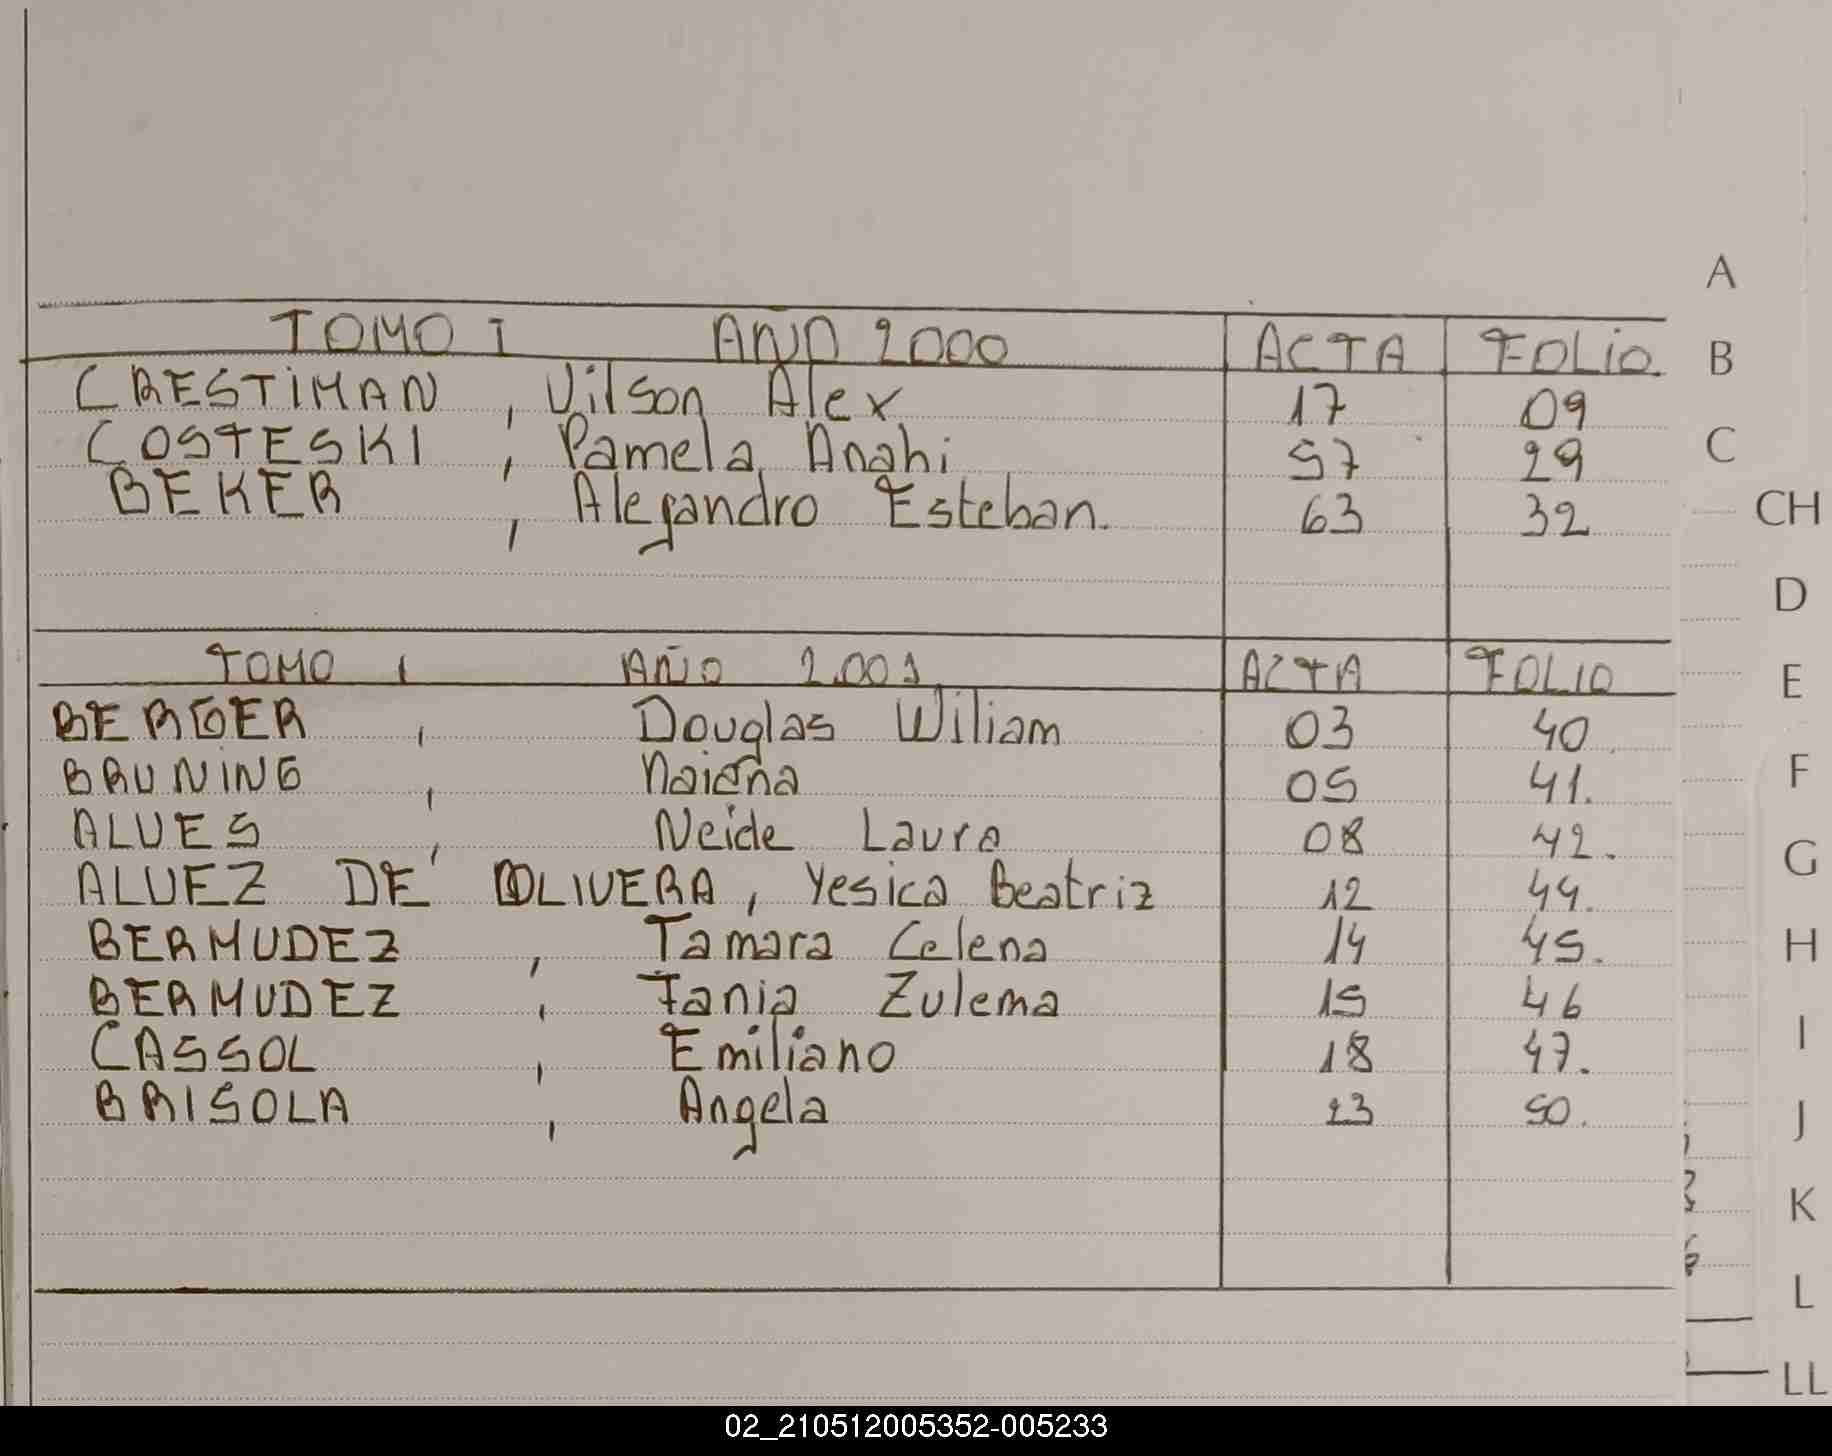 TOMO I AÑO 2000 ACTA FOLIO.
CRESTIMAN , Vilson Alex 17 09
COSTESKI , Pamela Anahi 57 29
BEKER , Alejandro Esteban. 63 32
TOMO I AÑO 2.001 ACTA FOLIO
BERGER , Douglas Wiliam 03 40.
BRUNING , Naiena 05 41.
ALVES , Neide Laura 08 42.
ALVEZ DE OLIVERA, Yesica Beatriz 12 44.
BERMUDEZ , Tamara Celena 14 45.
BERMUDEZ , Tania Zulema 15 46
CASSOL , Emiliano 18 47.
BRISOLA , Angela 23 50.
A
B
C
CH
D
E
F
G
H
I
J
K
L
LL
02_210512005352-005233